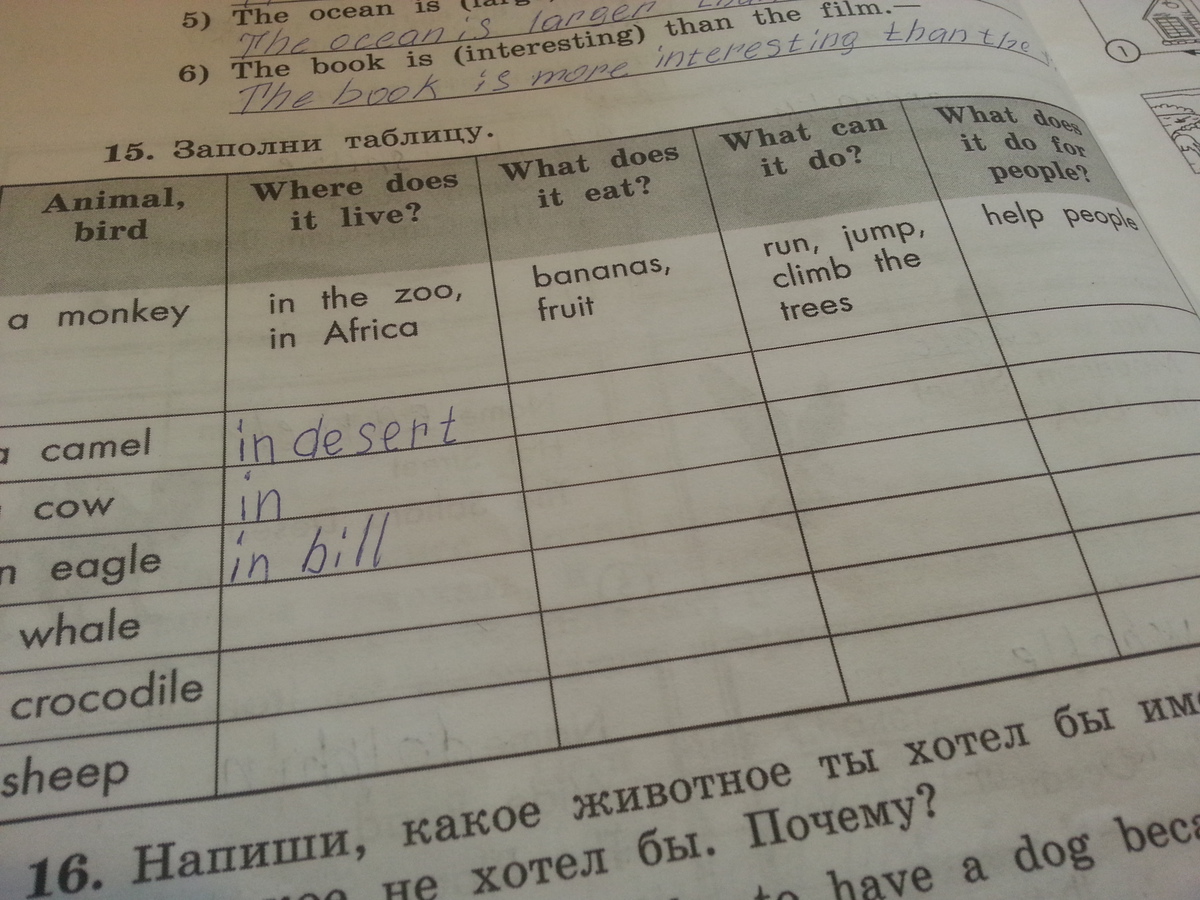 5) The ocean is
The ocean is larger
6) The book is (interesting) than the film.—
The book is more interesting than the
1
15. Заполни таблицу.
Animal, bird
Where does it live?
What does it eat?
What can it do?
What does it do for people?
a monkey
in the zoo, in Africa
bananas, fruit
run, jump, climb the trees
help people
a camel
in desert
cow
in
n eagle
in bill
whale
crocodile
sheep
16. Напиши, какое животное ты хотел бы
не хотел бы. Почему?
to have a dog